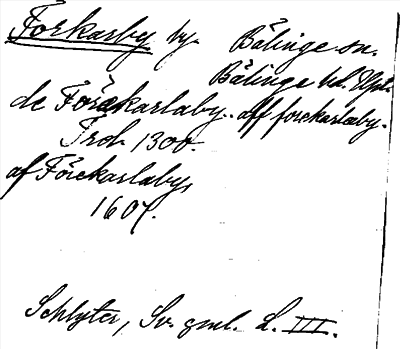 Forkarby by. Bälinge sn.
Bälinge hd. Upl.
de Förekarlaby. aff forekarlæby.
Troh 1300.
af Förekarlaby,
1607.
Schlyter, Sv. gml. L. III.